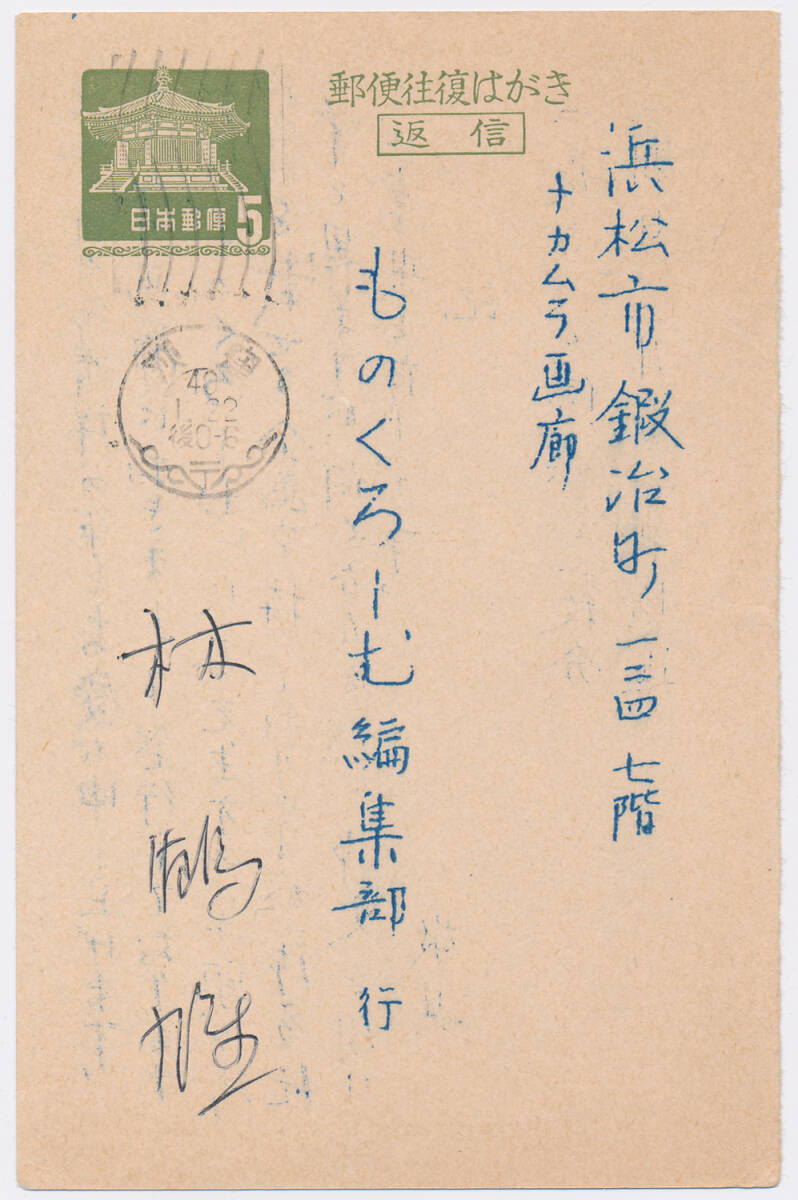 郵便往復はがき
返信
日本郵便 5
浜松市鍛冶町一三四 七階
ナカムラ画廊
ものくろーむ編集部 行
1.22
後0-6
林
鶴
雄